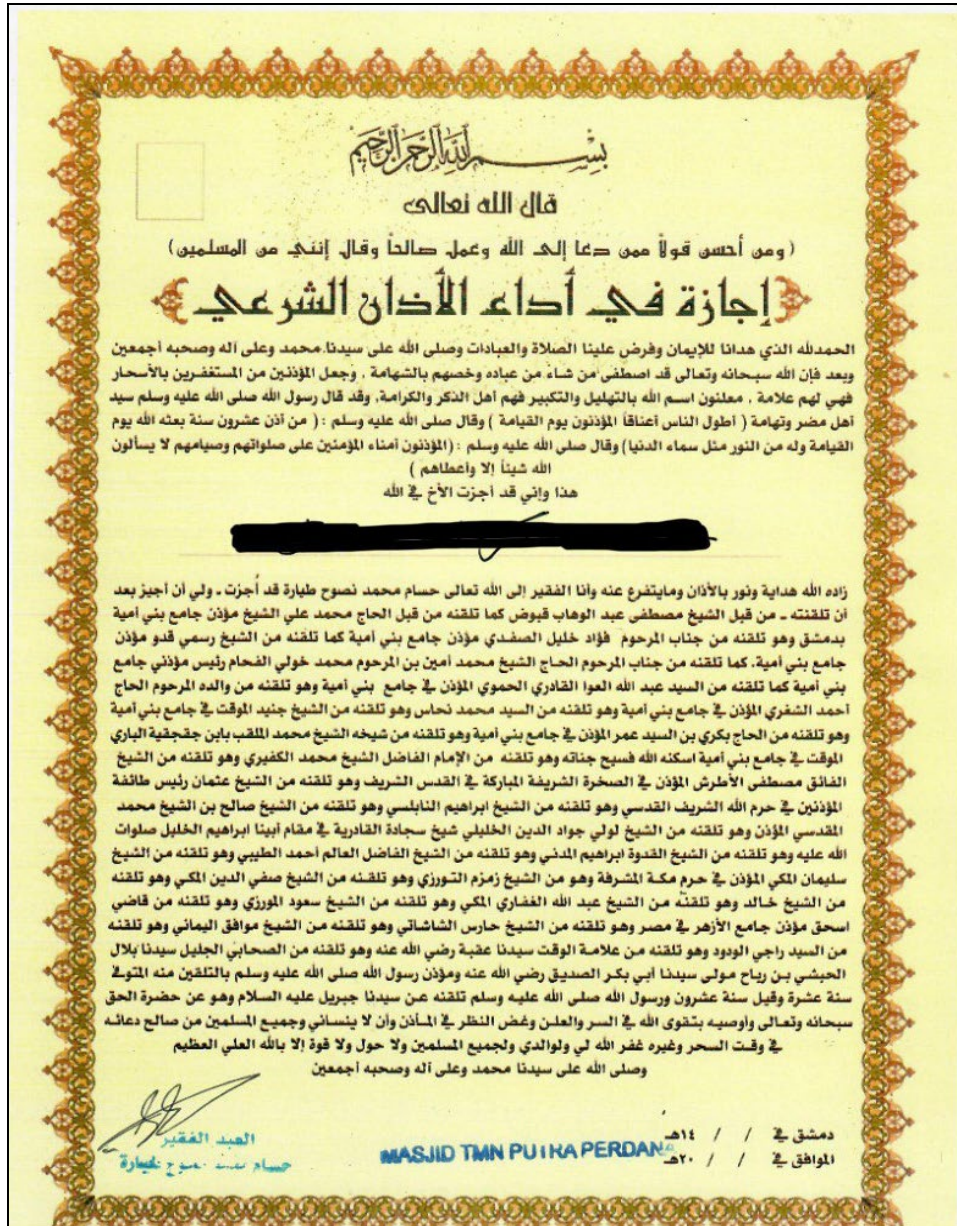 بسم الله الرحمن الرحيم
قال الله تعالى
(ومن أحسن قولاً ممن دعا إلى الله وعمل صالحاً وقال إنني من المسلمين)
إجازة في أداء الأذان الشرعي
الحمدلله الذي هدانا للإيمان وفرض علينا الصلاة والعبادات وصلى الله على سيدنا محمد وعلى آله وصحبه أجمعين
وبعد فإن الله سبحانه وتعالى قد اصطفى من شاء من عباده وخصهم بالشهامة . وجعل المؤذنين من المستغفرين بالأسحار
فهي لهم علامة . معلنون اسم الله بالتهليل والتكبير فهم أهل الذكر والكرامة. وقد قال رسول الله صلى الله عليه وسلم سيد
أهل مضر وتهامة ( أطول الناس أعناقاً المؤذنون يوم القيامة ) وقال صلى الله عليه وسلم : ( من أذن عشرون سنة بعثه الله يوم
القيامة وله من النور مثل سماء الدنيا) وقال صلى الله عليه وسلم : (المؤذنون أمناء المؤمنين على صلواتهم وصيامهم لا يسألون
الله شيئاً إلا وأعطاهم )
هذا وإني قد أجزت الأخ في الله
زاده الله هداية ونور بالأذان ومايتفرع عنه وأنا الفقير إلى الله تعالى حسام محمد نصوح طيارة قد أُجزت ـ ولي أن أجيز بعد
أن تلقنته ـ من قبل الشيخ مصطفى عبد الوهاب قبوض كما تلقنه من قبل الحاج محمد علي الشيخ مؤذن جامع بني أمية
بدمشق وهو تلقنه من جناب المرحوم فؤاد خليل الصفدي مؤذن جامع بني أمية كما تلقنه من الشيخ رسمي قدو مؤذن
جامع بني أمية. كما تلقنه من جناب المرحوم الحاج الشيخ محمد أمين بن المرحوم محمد خولي الفحام رئيس مؤذني جامع
بني أمية كما تلقنه من السيد عبد الله العوا القادري الحموي المؤذن في جامع بني أمية وهو تلقنه من والده المرحوم الحاج
أحمد الشغري المؤذن في جامع بني أمية وهو تلقنه من السيد محمد نحاس وهو تلقنه من الشيخ جنيد الموقت في جامع بني أمية
وهو تلقنه من الحاج بكري بن السيد عمر المؤذن في جامع بني أمية وهو تلقنه من شيخه الشيخ محمد الملقب بابن جقجقية الباري
الموقت في جامع بني أمية اسكنه الله فسيح جناته وهو تلقنه من الإمام الفاضل الشيخ محمد الكفيري وهو تلقنه من الشيخ
الفائق مصطفى الأطرش المؤذن في الصخرة الشريفة المباركة في القدس الشريف وهو تلقنه من الشيخ عثمان رئيس طائفة
المؤذنين في حرم الله الشريف القدسي وهو تلقنه من الشيخ ابراهيم النابلسي وهو تلقنه من الشيخ صالح بن الشيخ محمد
المقدسي المؤذن وهو تلقنه من الشيخ لولي جواد الدين الخليلي شيخ سجادة القادرية في مقام أبينا ابراهيم الخليل صلوات
الله عليه وهو تلقنه من الشيخ القدوة ابراهيم المدني وهو تلقنه من الشيخ الفاضل العالم أحمد الطيبي وهو تلقنه من الشيخ
سليمان المكي المؤذن في حرم مكة المشرفة وهو من الشيخ زمزم التورزي وهو تلقنه من الشيخ صفي الدين المكي وهو تلقنه
من الشيخ خالد وهو تلقنه من الشيخ عبد الله الغفاري المكي وهو تلقنه من الشيخ سعود المورزي وهو تلقنه من قاضي
اسحق مؤذن جامع الأزهر في مصر وهو تلقنه من الشيخ حارس الشاشاتي وهو تلقنه من الشيخ موافق اليماني وهو تلقنه
من السيد راجي الودود وهو تلقنه من علامة الوقت سيدنا عقبة رضي الله عنه وهو تلقنه من الصحابي الجليل سيدنا بلال
الحبشي بن رباح مولى سيدنا أبي بكر الصديق رضي الله عنه ومؤذن رسول الله صلى الله عليه وسلم بالتلقين منه المتوفى
سنة عشرة وقيل سنة عشرون ورسول الله صلى الله عليه وسلم تلقنه عن سيدنا جبريل عليه السلام وهو عن حضرة الحق
سبحانه وتعالى وأوصيه بتقوى الله في السر والعلن وغض النظر في المآذن وأن لا ينساني وجميع المسلمين من صالح دعائه
في وقت السحر وغيره غفر الله لي ولوالدي ولجميع المسلمين ولا حول ولا قوة إلا بالله العلي العظيم
وصلى الله على سيدنا محمد وعلى آله وصحبه أجمعين
دمشق في / / ١٤هـ
الموافق في / / ٢٠هـ
MASJID TMN PUTRA PERDANA
العبد الفقير
حسام محمد نصوح طيارة